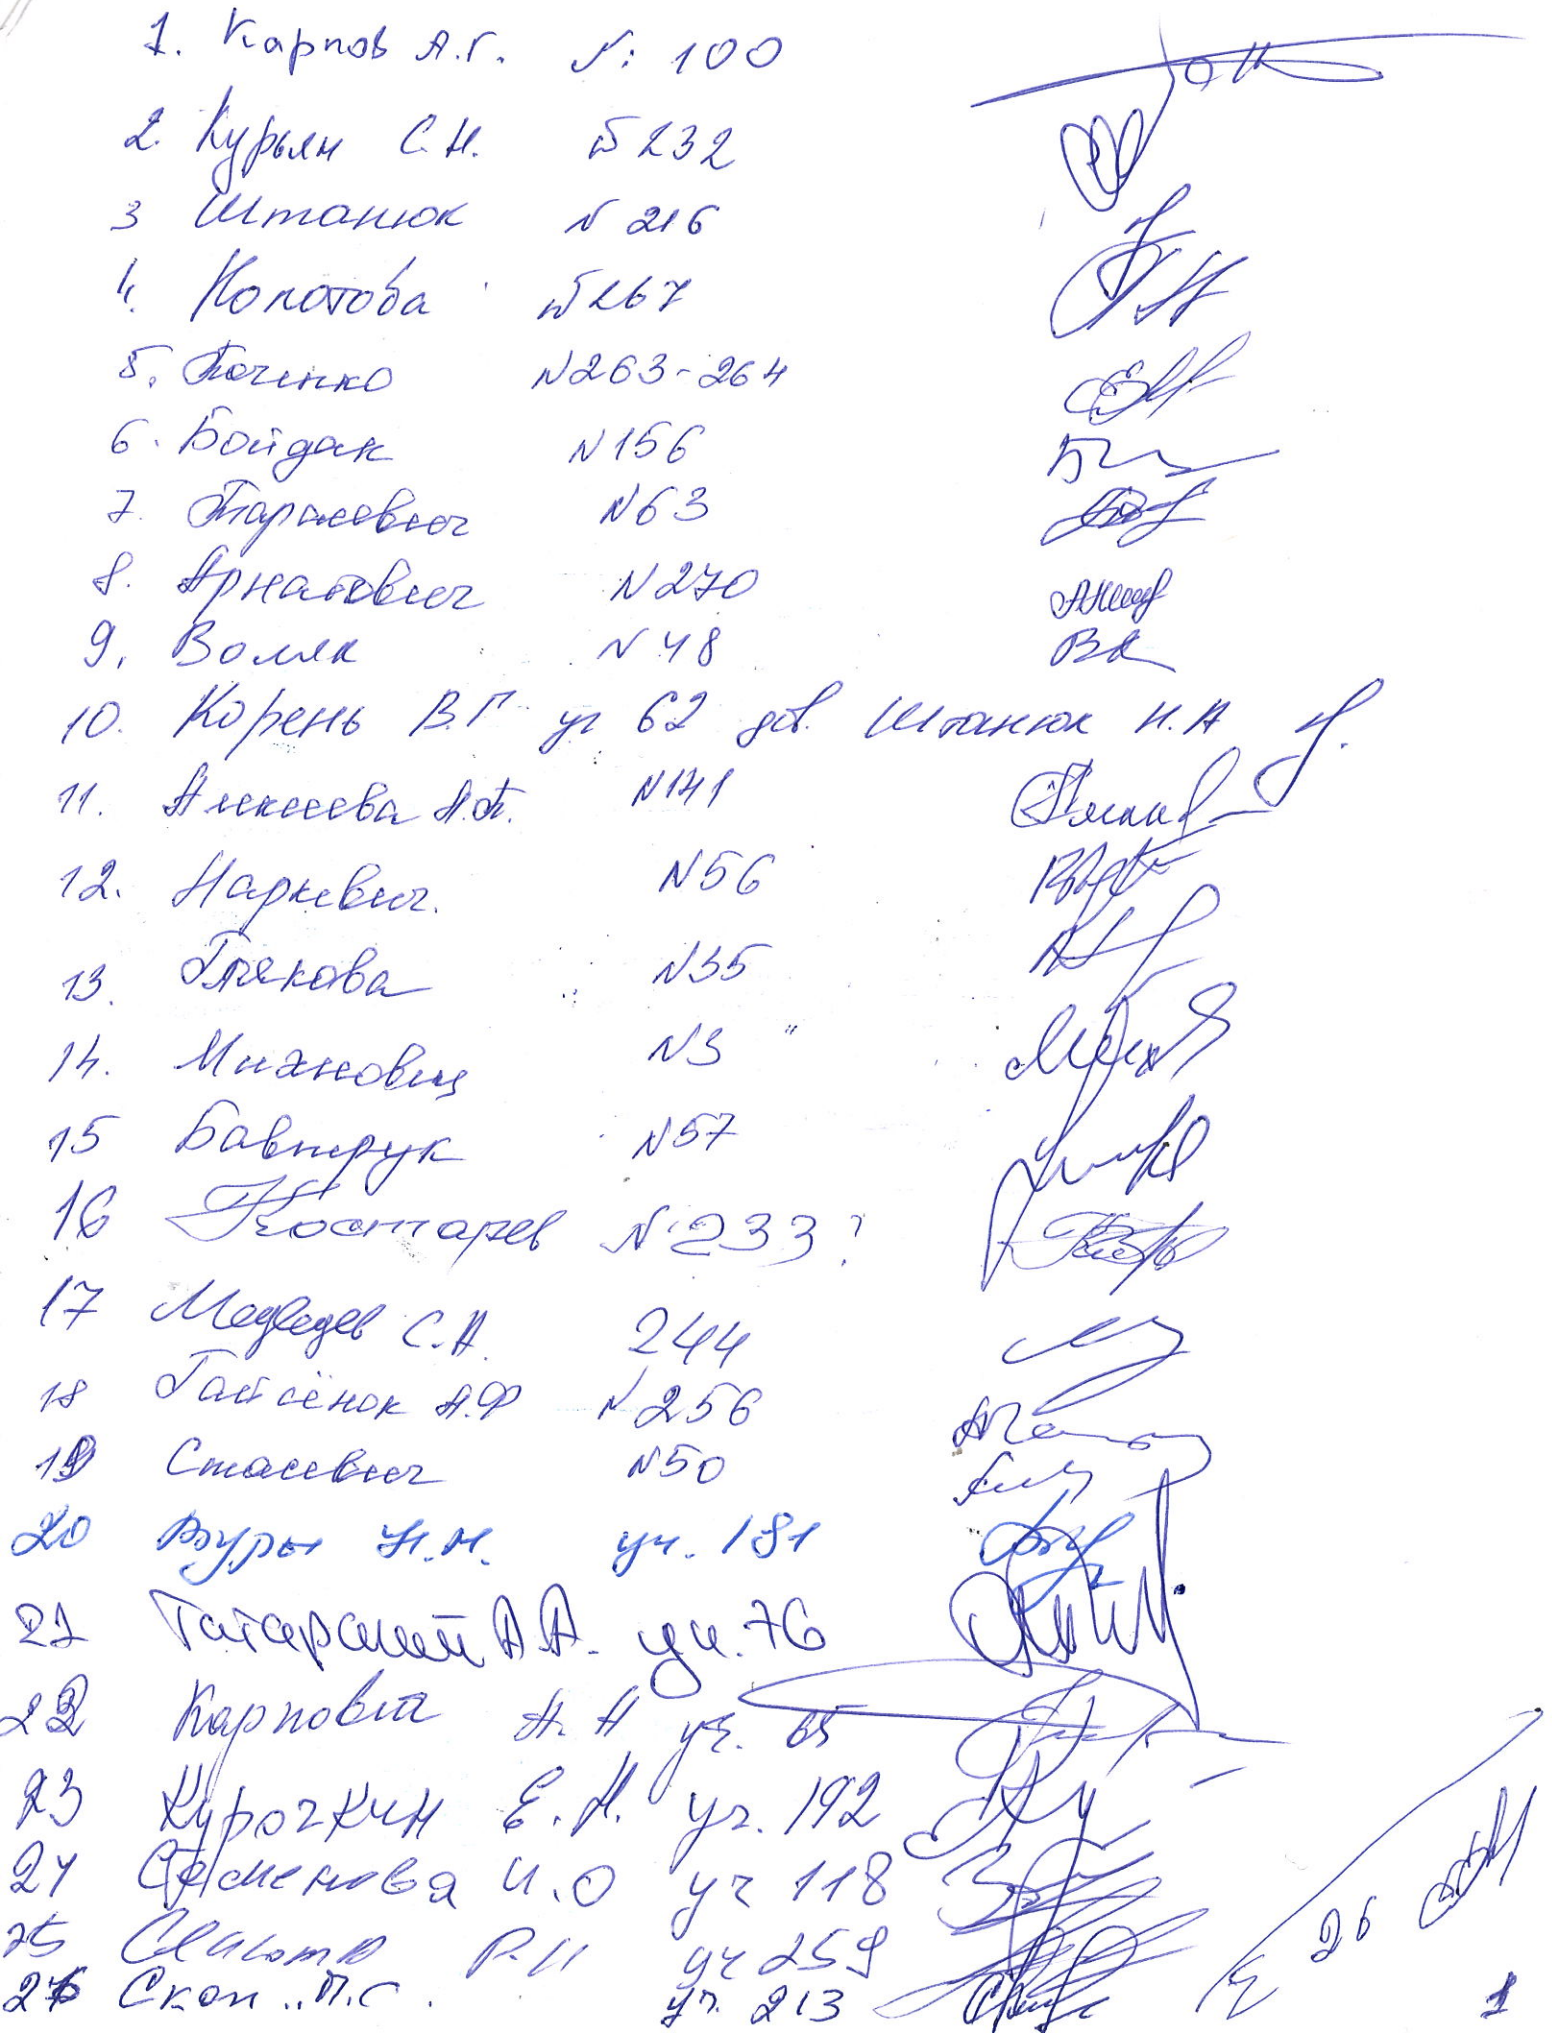 1. Карпов А.Г. N: 100
2. Курьян С.Н. N 232
3 Штанюк N 216
4. N 267
5. N263-264
6. Бойдак N156
7. Тарасевич N63
8. Арнатович N270
9. Волик N 48
10. Корень В.Г уч 62 дов. Штанюк Н.А
11. Алексеева А.П. N141
12. Наркевич. N56
13. N35
14. Михнович N3
15 Бавтрук N57
16 Костарев N 233?
17 Медведев С.А. 244
18 Гайсёнок А.Ф N 256
19 Стасевич N50
20 уч. 181
21 А.А. уч. 76
22 Карпович А. Н уч. 65
23 Курочкин Е.Н. уч. 192
24 Семенова И.О уч 118
25 уч 259
26 Скоп П.С. уч. 213
Σ 26
1